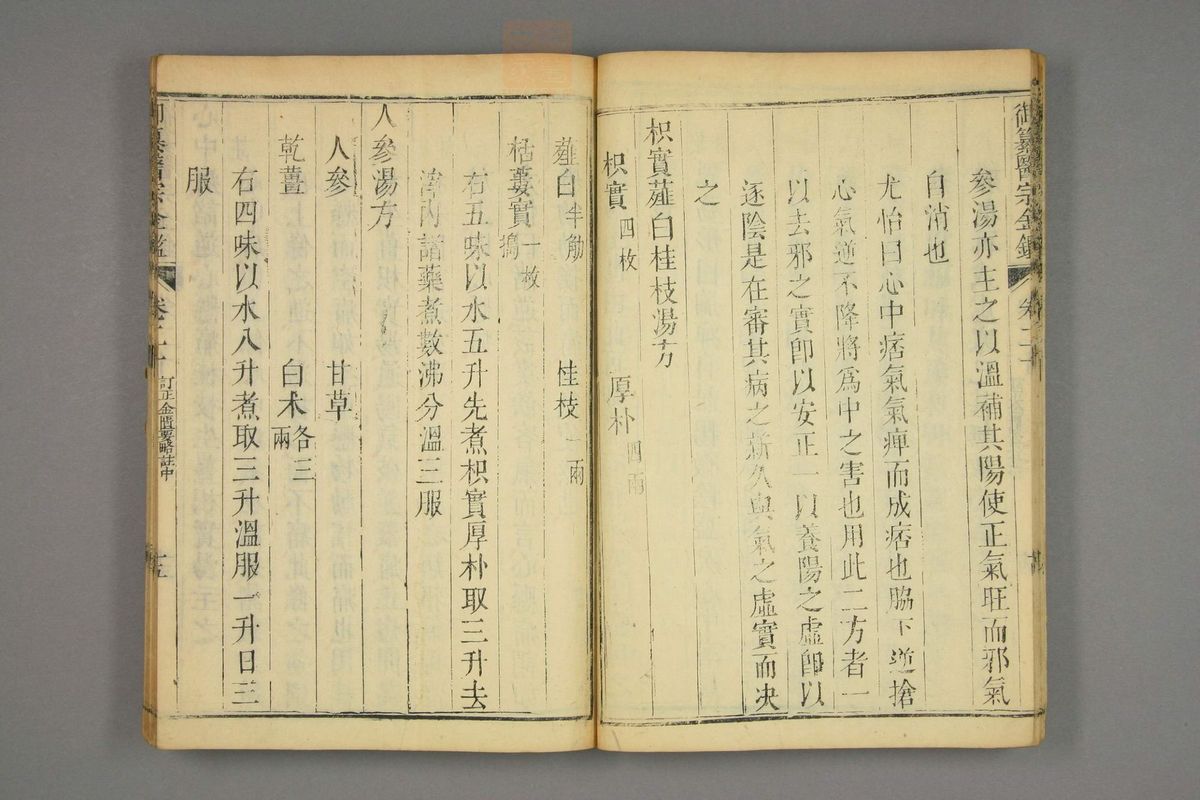 御纂醫宗金鑑 卷二十
參湯亦主之以溫補其陽使正氣旺而邪氣
自消也
尤怡曰心中痞氣氣痹而成痞也脇下逆搶
心氣逆不降將爲中之害也用此二方者一
以去邪之實卽以安正一以養陽之虛卽以
逐陰是在審其病之新久與氣之虛實而决
之
枳實薤白桂枝湯方
枳實四枚 厚朴四兩
薤白半觔 桂枝一兩
栝蔞實一枚擣
右五味以水五升先煮枳實厚朴取三升去
滓內諸藥煮數沸分溫三服
人參湯方
人參 甘草
乾薑 白术各三兩
右四味以水八升煮取三升溫服一升日三
服
御纂醫宗金鑑 卷二十 訂正金匱要略註中